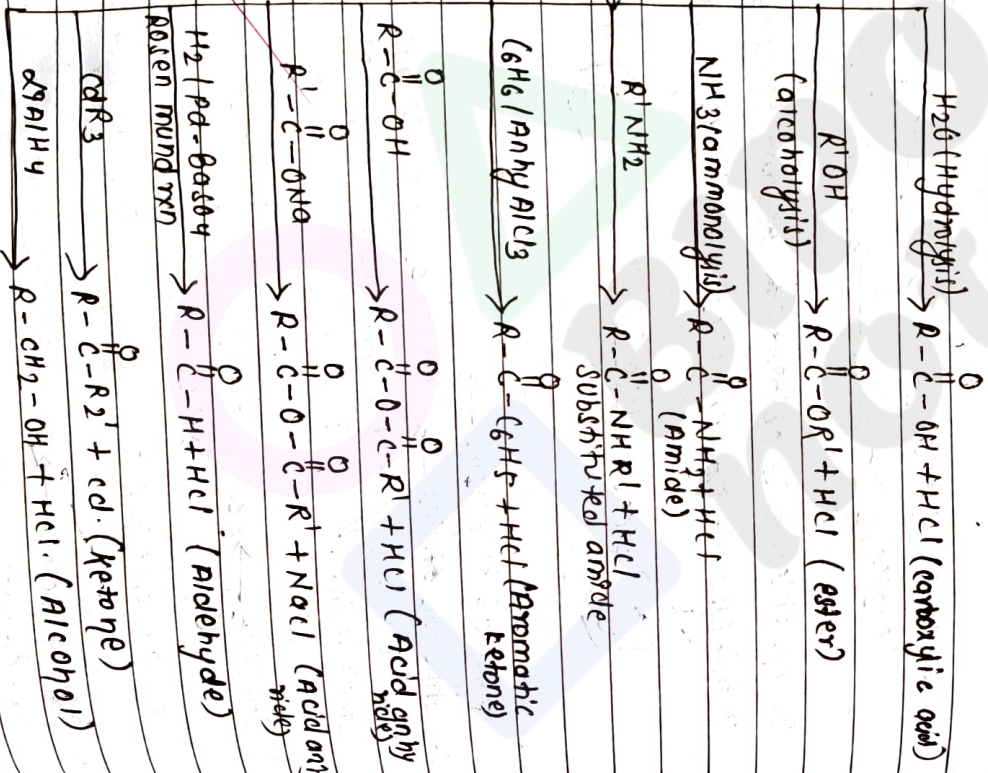 H2O (Hydrolysis) → R-C(=O)-OH + HCl (carboxylic acid)
R'OH (alcoholysis) → R-C(=O)-OR' + HCl (ester)
NH3 (ammonolysis) → R-C(=O)-NH2 + HCl (Amide)
R'NH2 → R-C(=O)-NHR' + HCl
substituted amide
C6H6 / Anhy AlCl3 → R-C(=O)-C6H5 + HCl (Aromatic ketone)
R-C(=O)-OH → R-C(=O)-O-C(=O)-R' + HCl (Acid anhy ride)
R'-C(=O)-ONa → R-C(=O)-O-C(=O)-R' + NaCl (Acid anh ride)
H2 / Pd-BaSO4 Rosen mund rxn → R-C(=O)-H + HCl (Aldehyde)
cdR3 → R-C(=O)-R2' + cd. (ketone)
LiAlH4 → R-CH2-OH + HCl. (Alcohol)